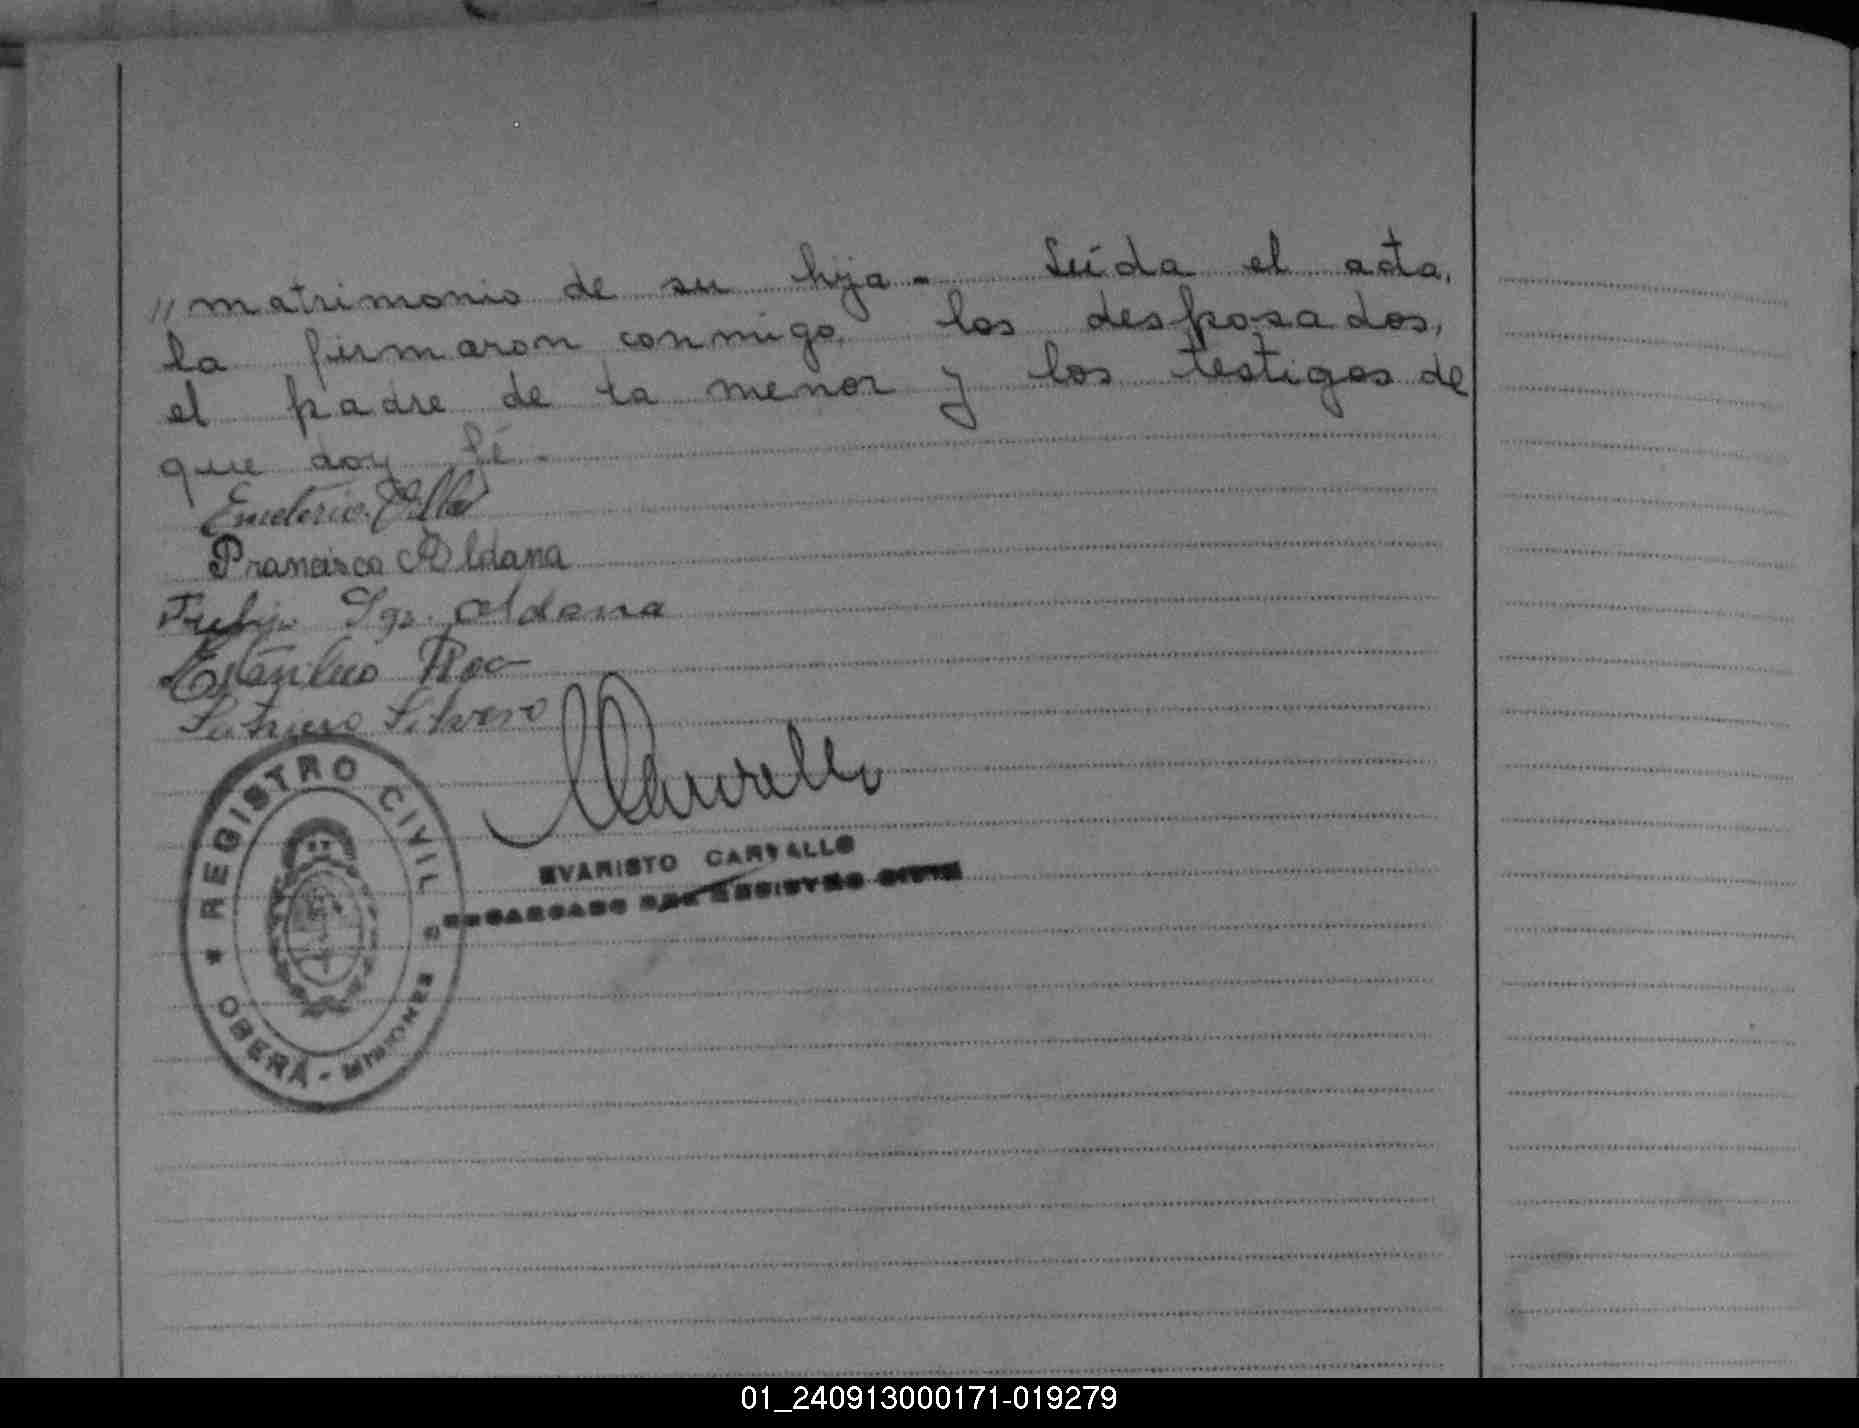 // matrimonio de su hija - Leída el acta,
la firmaron conmigo, los desposados,
el padre de la menor y los testigos de
que doy fé -
Emeterio
Francisca Aldana
Aldana
Roa
Silvero
Carvallo
EVARISTO CARVALLO
ENCARGADO DEL REGISTRO CIVIL
REGISTRO CIVIL
OBERÁ - MISIONES
01_240913000171-019279